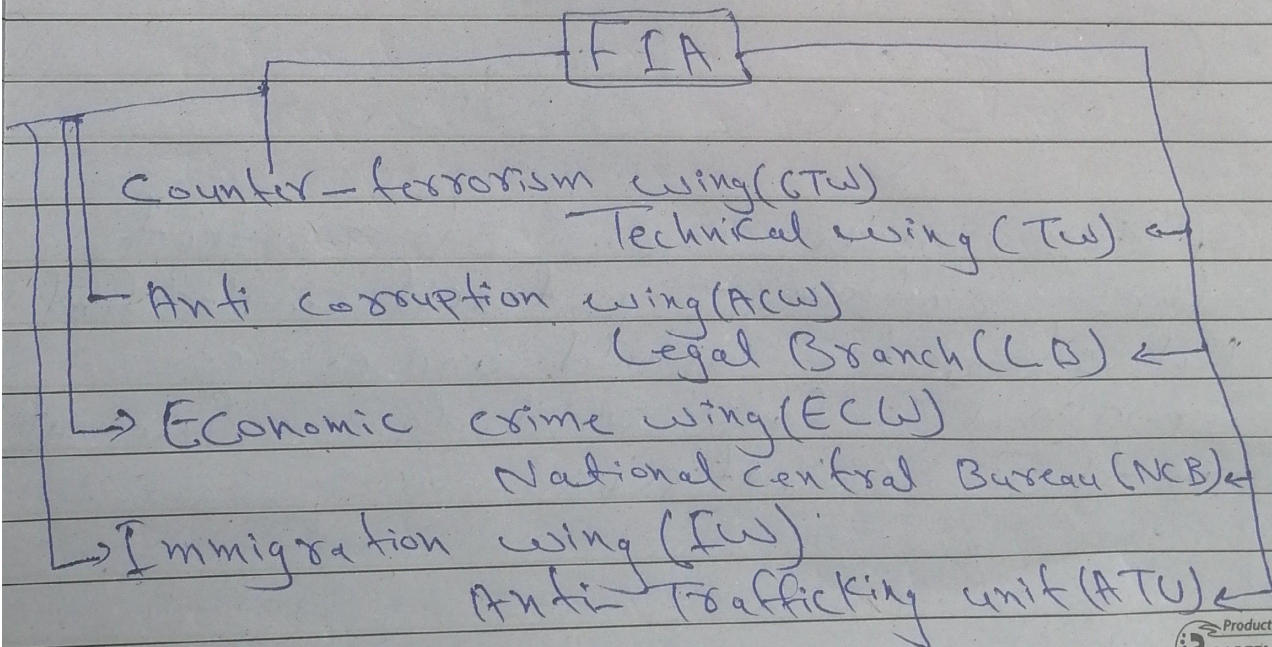 FIA
Counter-terrorism wing (CTW)
Technical wing (TW)
Anti corruption wing (ACW)
Legal Branch (LB)
Economic crime wing (ECW)
National Central Bureau (NCB)
Immigration wing (IW)
Anti-Trafficking unit (ATU)
Product